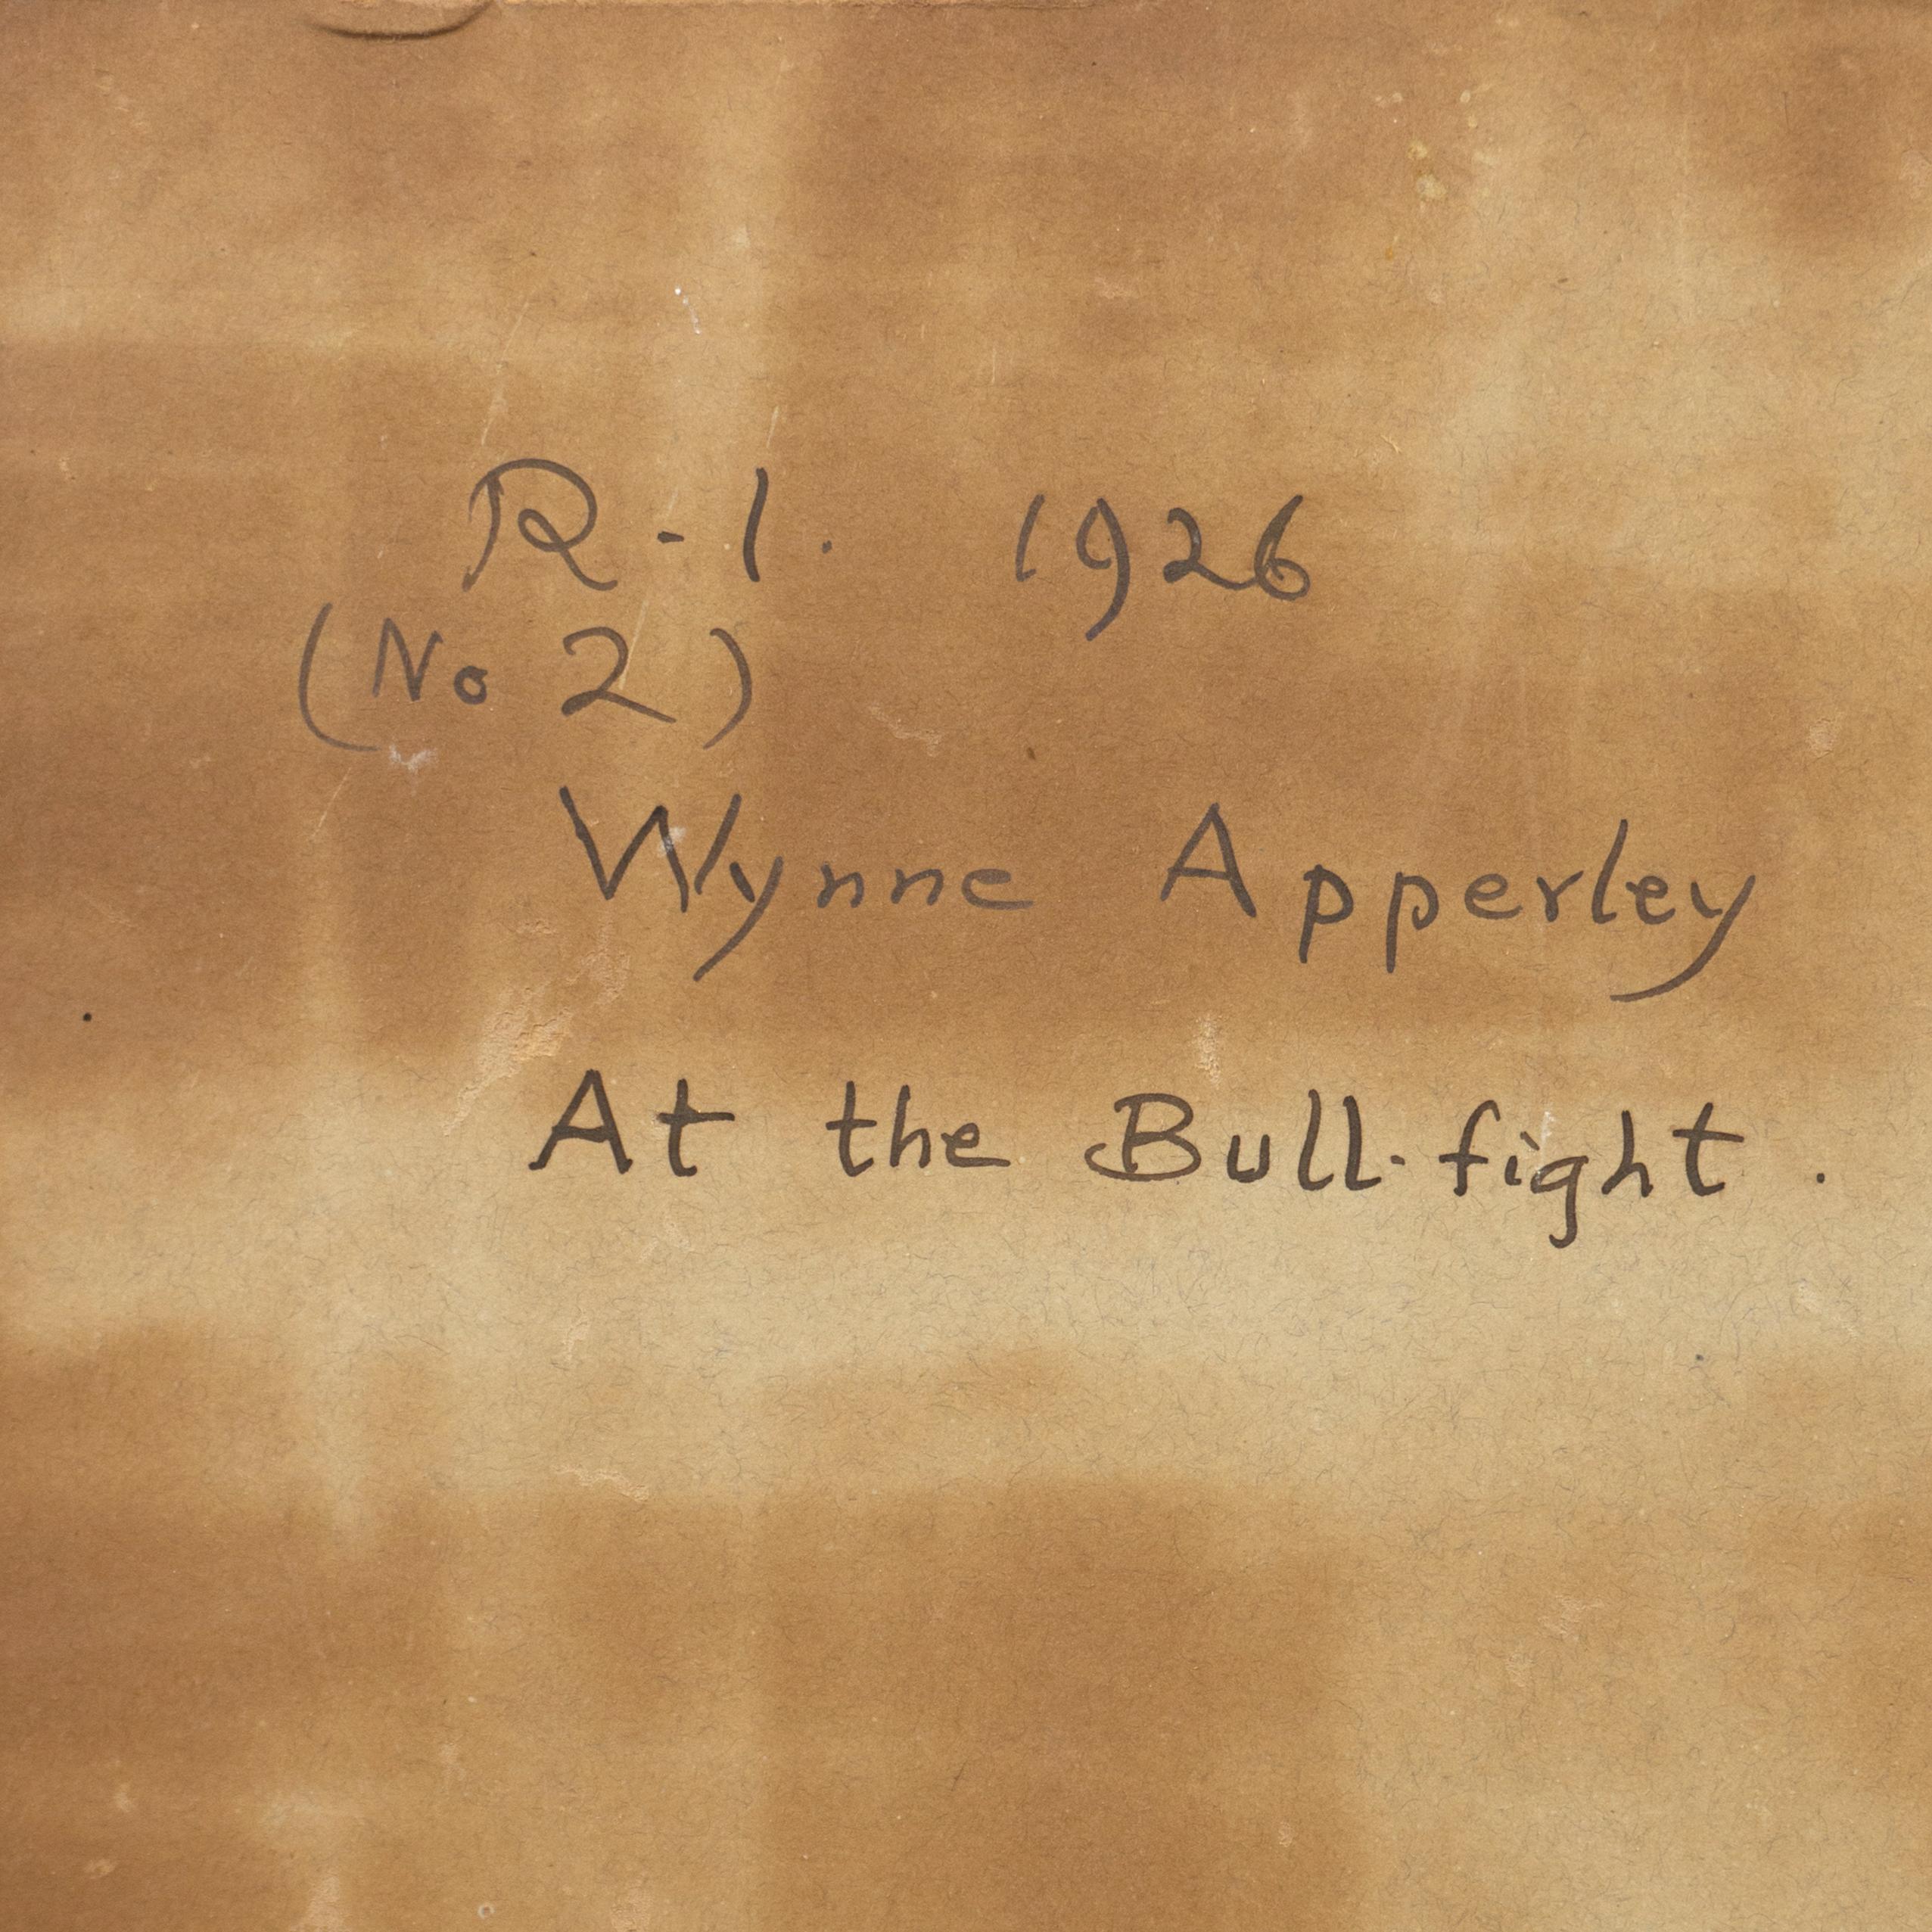 R-I. 1926
(No 2)
Wynne Apperley
At the Bull-fight.